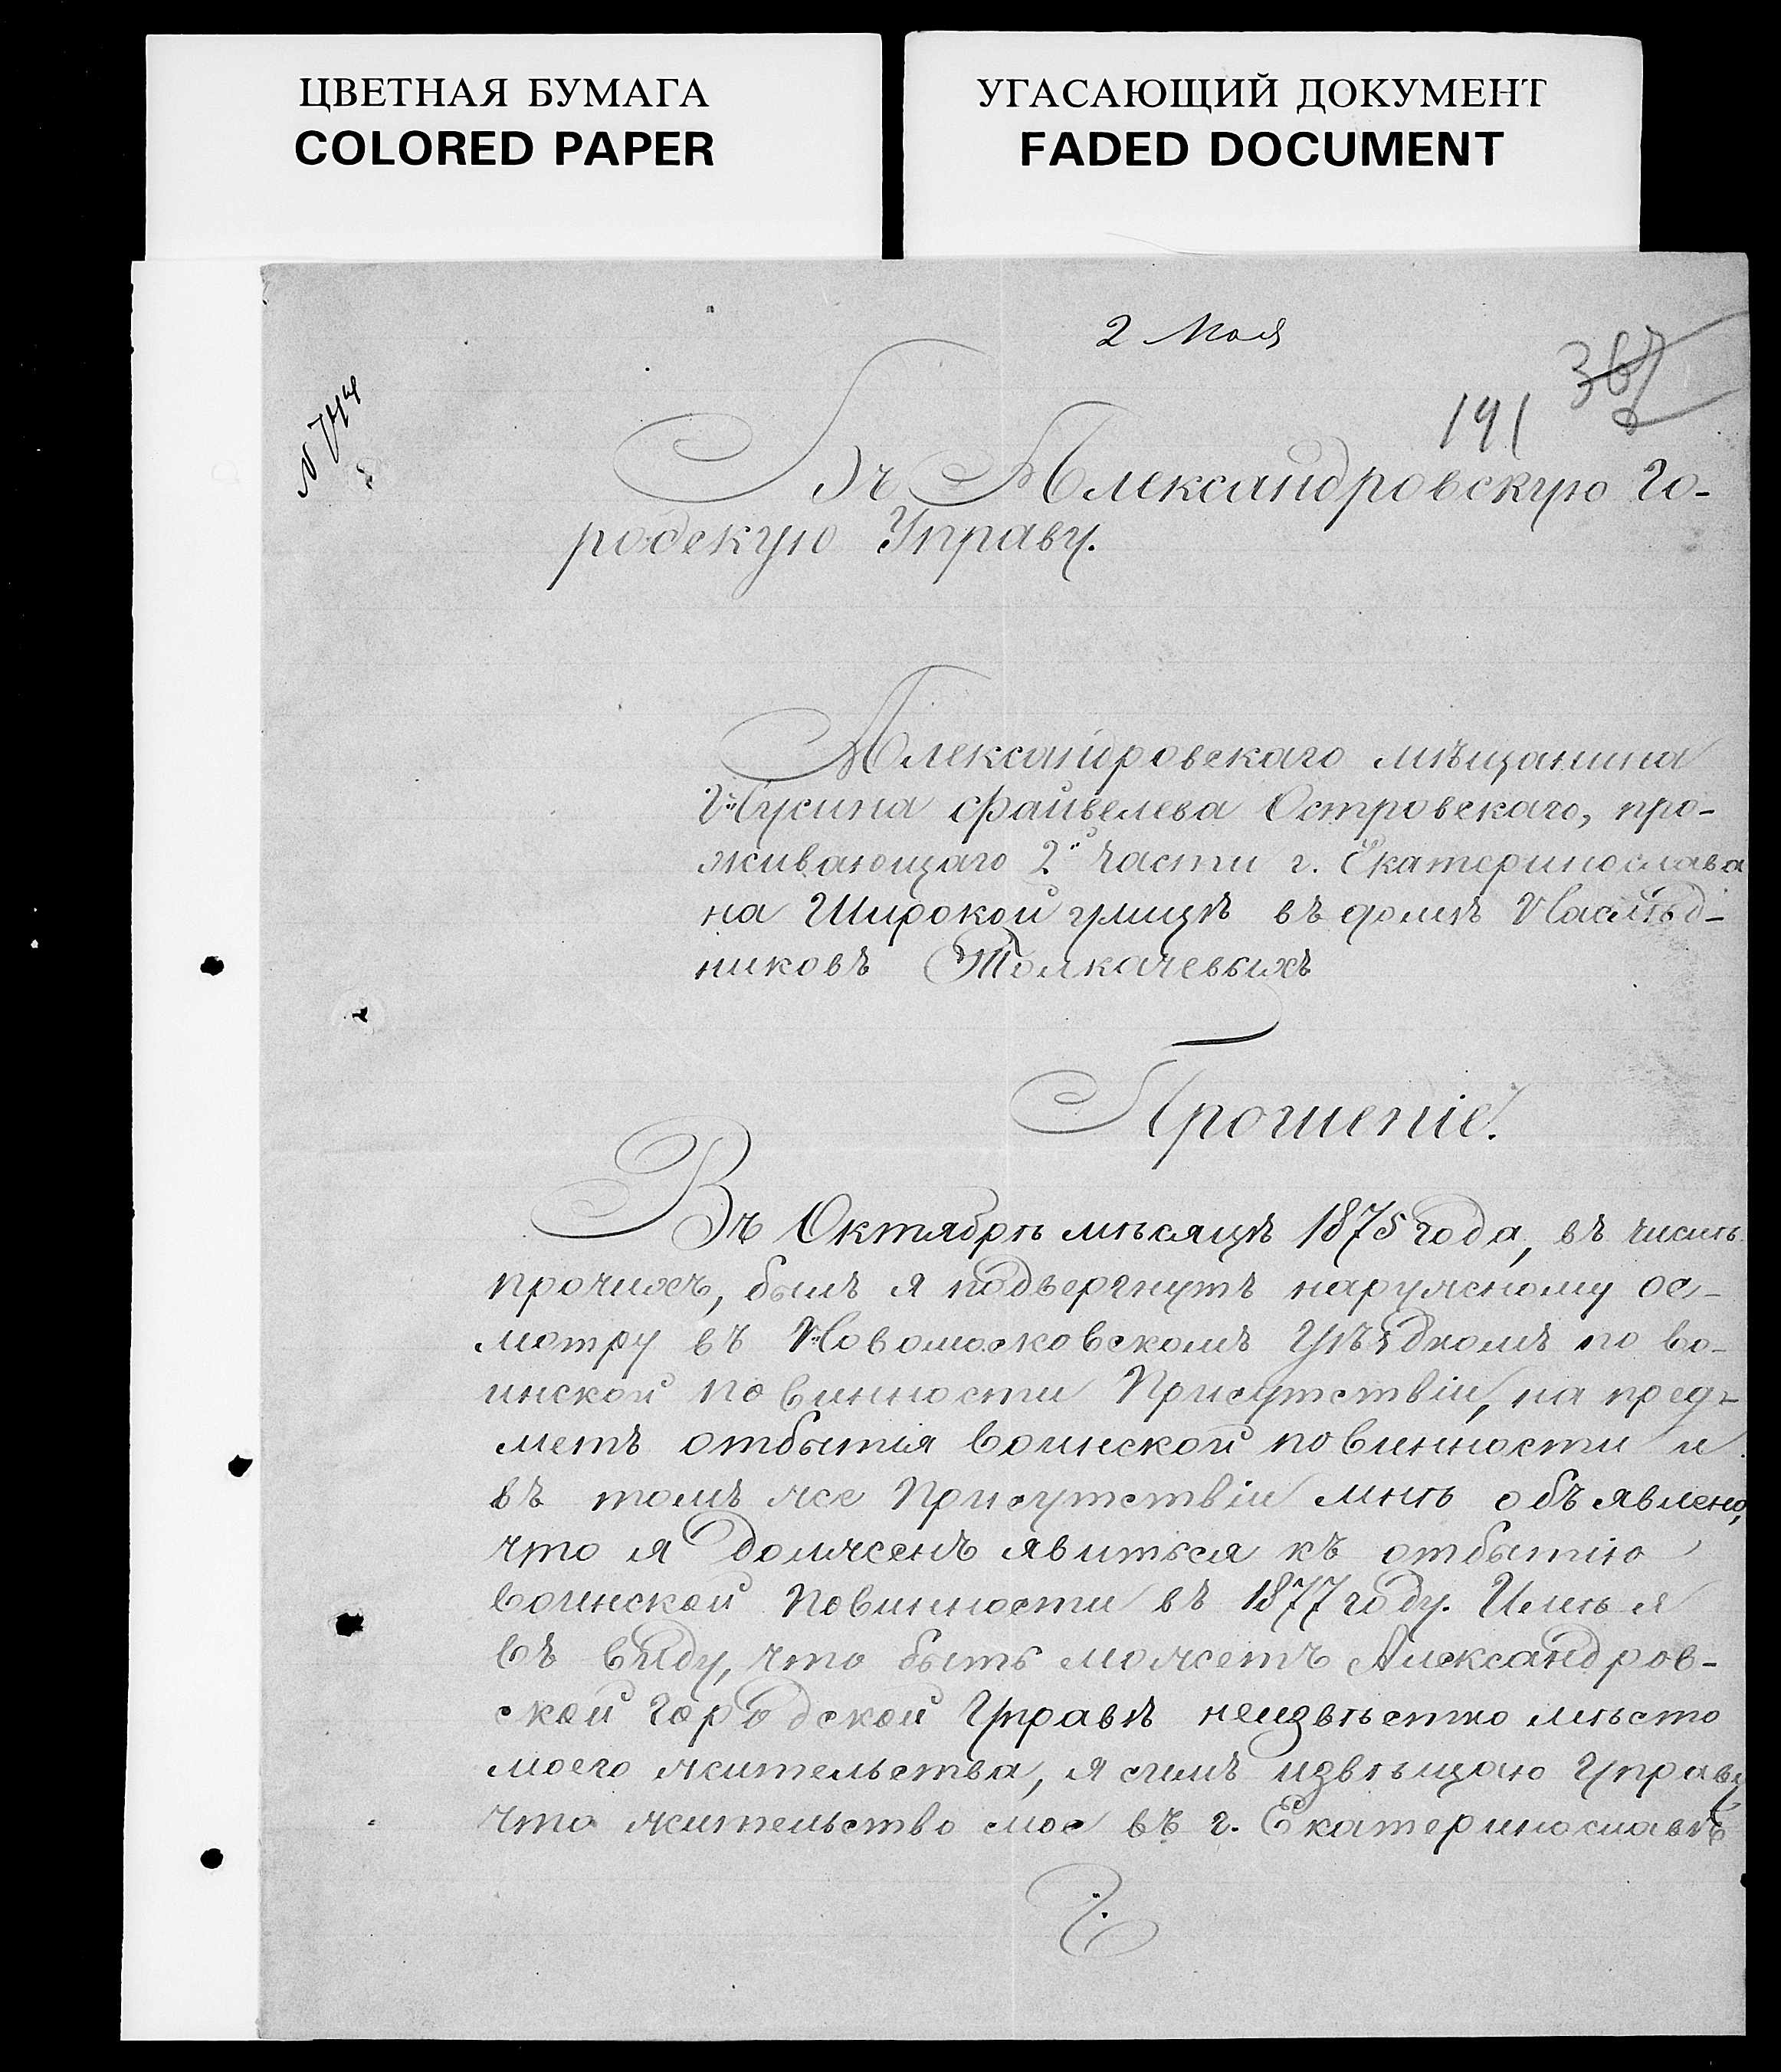 ЦВЕТНАЯ БУМАГА
COLORED PAPER
УГАСАЮЩИЙ ДОКУМЕНТ
FADED DOCUMENT
2 Мая
367
191
Въ Александровскую Го-
родскую Управу.
Александровскаго мѣщанина
Нусина Файвелева Островскаго, про-
живающаго 2й части г. Екатеринослава
на Широкой улицѣ въ домѣ Наслѣд-
никовъ Толкачевыхъ
Прошеніе.
Въ Октябрѣ мѣсяцѣ 1875 года, въ числѣ
прочихъ, былъ я подвергнутъ наружному ос-
мотру въ Новомосковскомъ Уѣздномъ по во-
инской повинности Присутствіи, на пред-
метъ отбытія воинской повинности и
въ томъ же Присутствіи мнѣ объявлено,
что я долженъ явиться къ отбытію
воинской повинности въ 1877 году. Имѣя
въ виду, что быть можетъ Александров-
ской Городской Управѣ неизвѣстно мѣсто
моего жительства, я симъ извѣщаю Управу
что жительство мое въ г. Екатеринославѣ